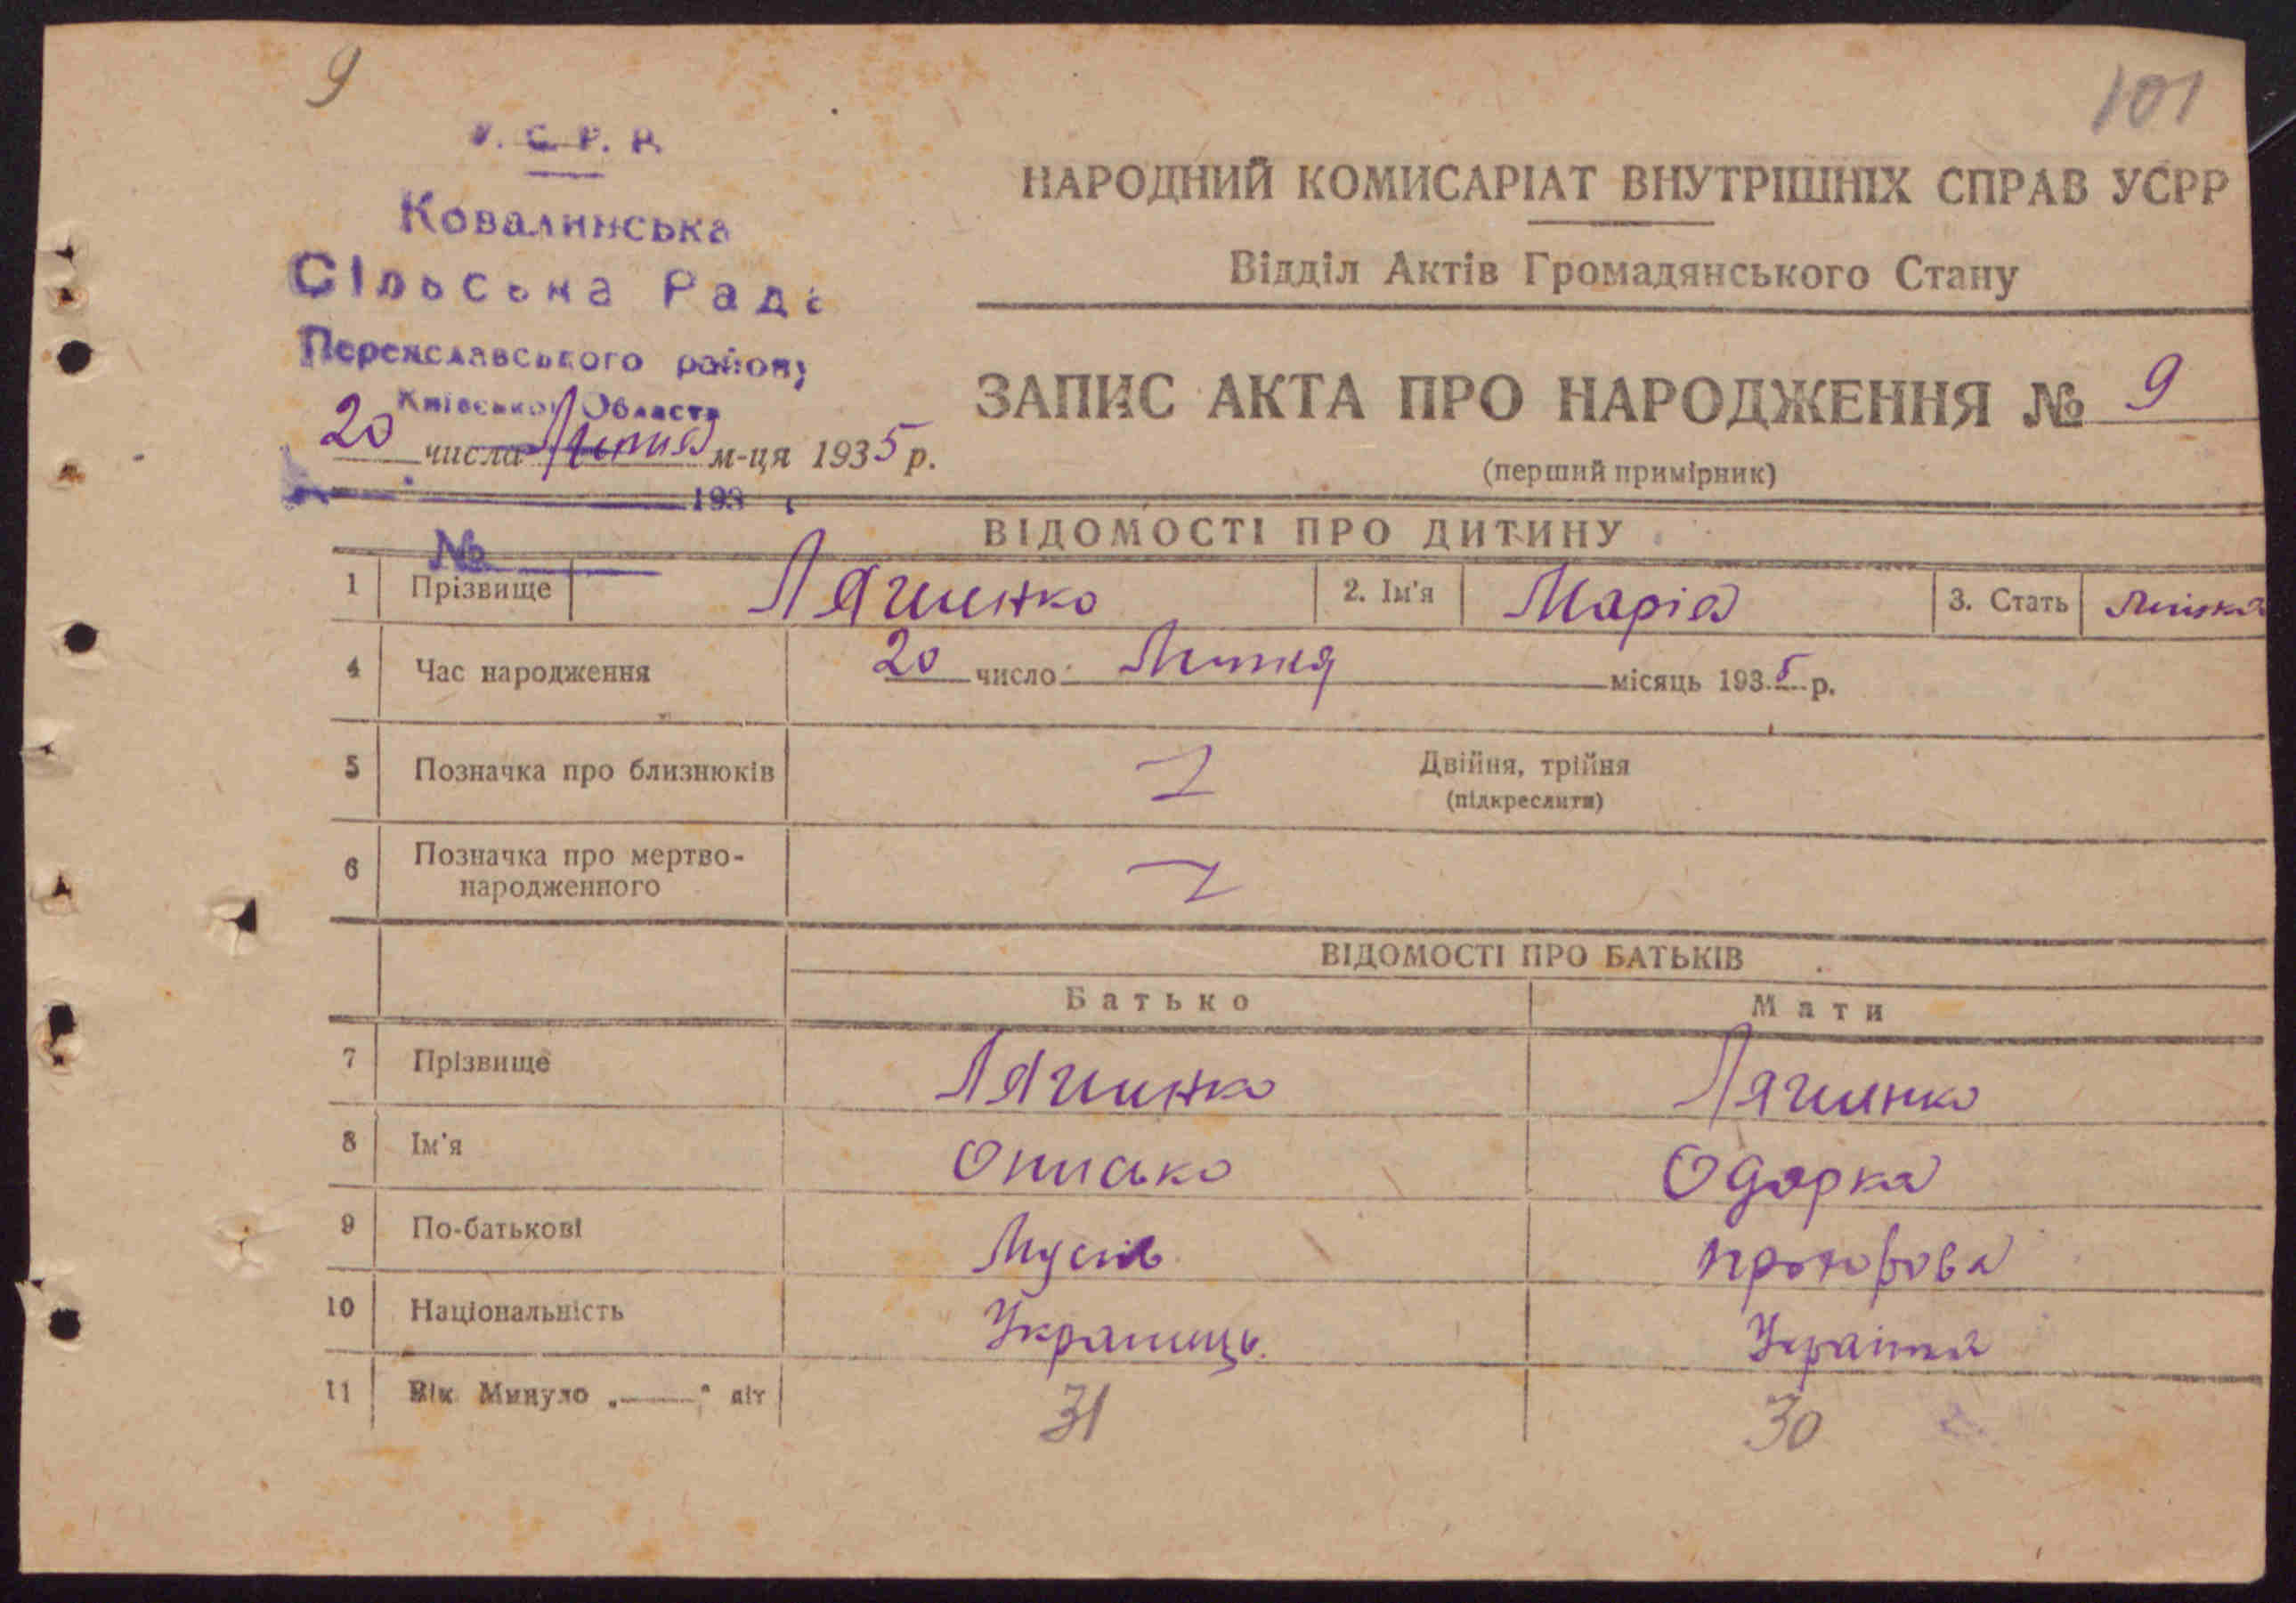 9
101
У. С. Р. Р.
Ковалинська
Сільська Рада
Переяславського району
Київської Области
20 числа Липня м-ця 1935 р.
193
№
НАРОДНИЙ КОМИСАРІАТ ВНУТРІШНІХ СПРАВ УСРР
Відділ Актів Громадянського Стану
ЗАПИС АКТА ПРО НАРОДЖЕННЯ № 9
(перший примірник)
ВІДОМОСТІ ПРО ДИТИНУ
1 Прізвище Лячинко 2. Ім'я Марія 3. Стать
4 Час народження 20 число Липня місяць 1935 р.
5 Позначка про близнюків Двійня, трійня
(підкреслити)
6 Позначка про мертво-
народженного
ВІДОМОСТІ ПРО БАТЬКІВ
Батько Мати
7 Прізвище Лячинко Лячинко
8 Ім'я Онисько Одарка
9 По-батькові Мусів
10 Національність Украинець Українка
11 Вік Минуло „ " літ 31 30